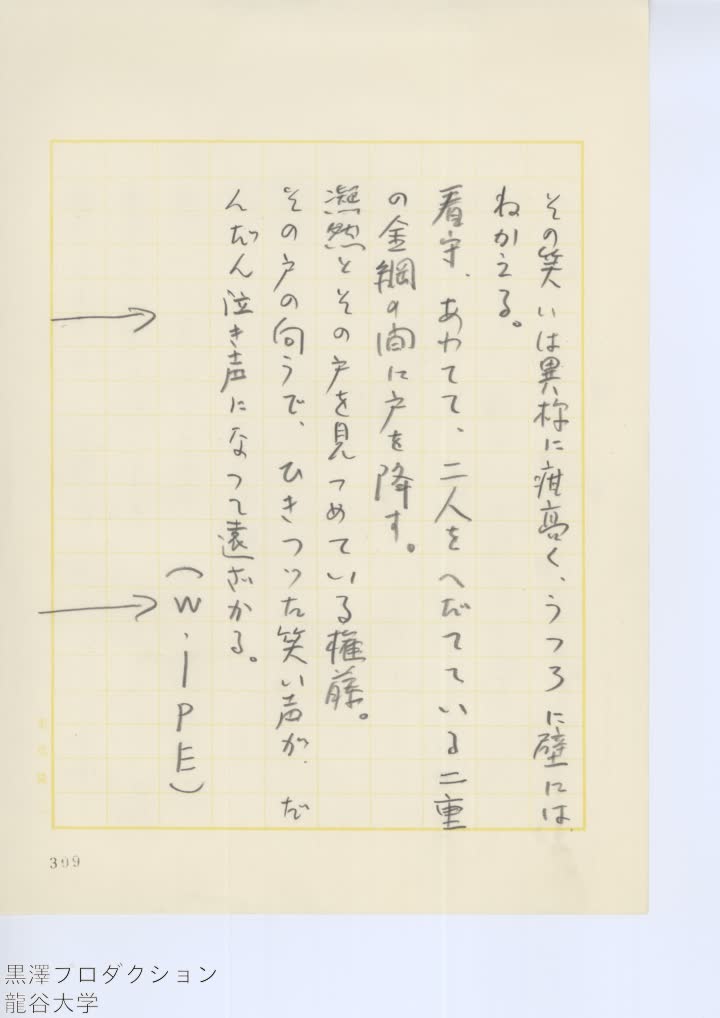 その笑いは異様に疳高く、うつろに壁には
ねかえる。
看守、あわてて、二人をへだてている二重
の金網の間に戸を降す。
凝然とその戸を見つめている権藤。
その戸の向うで、ひきつった笑い声が、だ
んだん泣き声になって遠ざかる。
(W・IPE)
309
黒澤プロダクション
龍谷大学